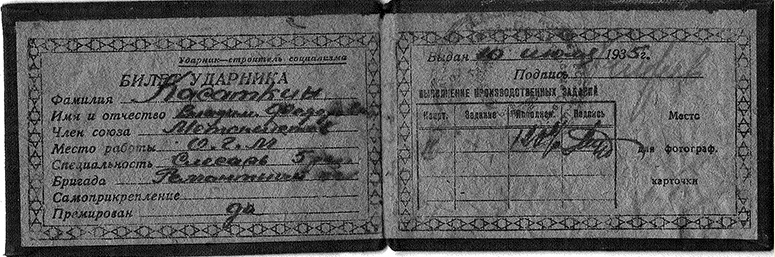 Ударник-строитель социализма
БИЛЕТ УДАРНИКА
Фамилия Касаткин
Имя и отчество Владим. Федорович
Член союза
Место работы О.Г.М
Специальность Слесарь 5 раз.
Бригада Ремонтный
Самоприкрепление
Премирован да
Выдан 10 июля 1935 г.
Подпись
ВЫПОЛНЕНИЕ ПРОИЗВОДСТВЕННЫХ ЗАДАНИЙ
Кварт. Задание Выполнен. Подпись
II 120%
Место
для фотограф.
карточки